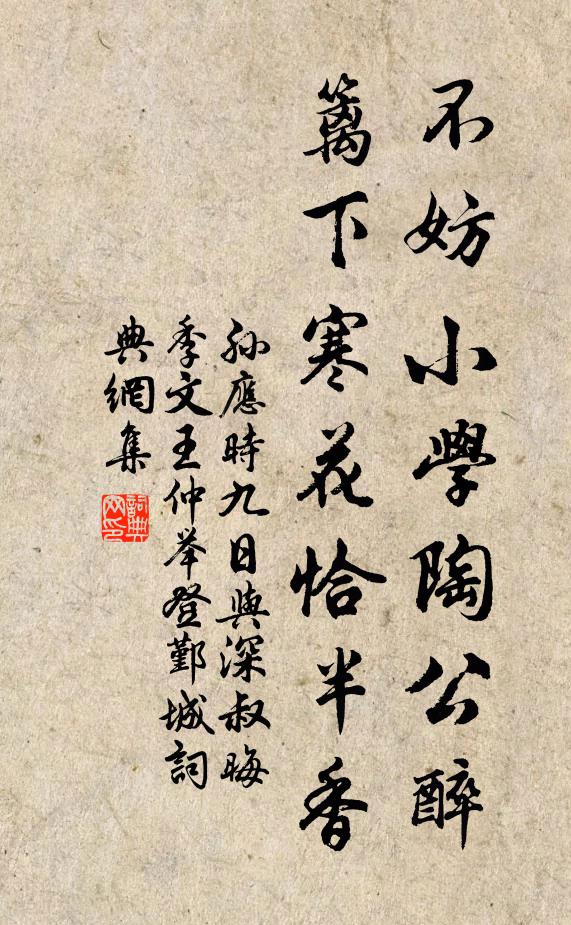 不妨小學陶公醉
籬下寒花恰半香
孫應時九日與深叔晦
季文王仲举登鄞城詞
典網集
詞典網印